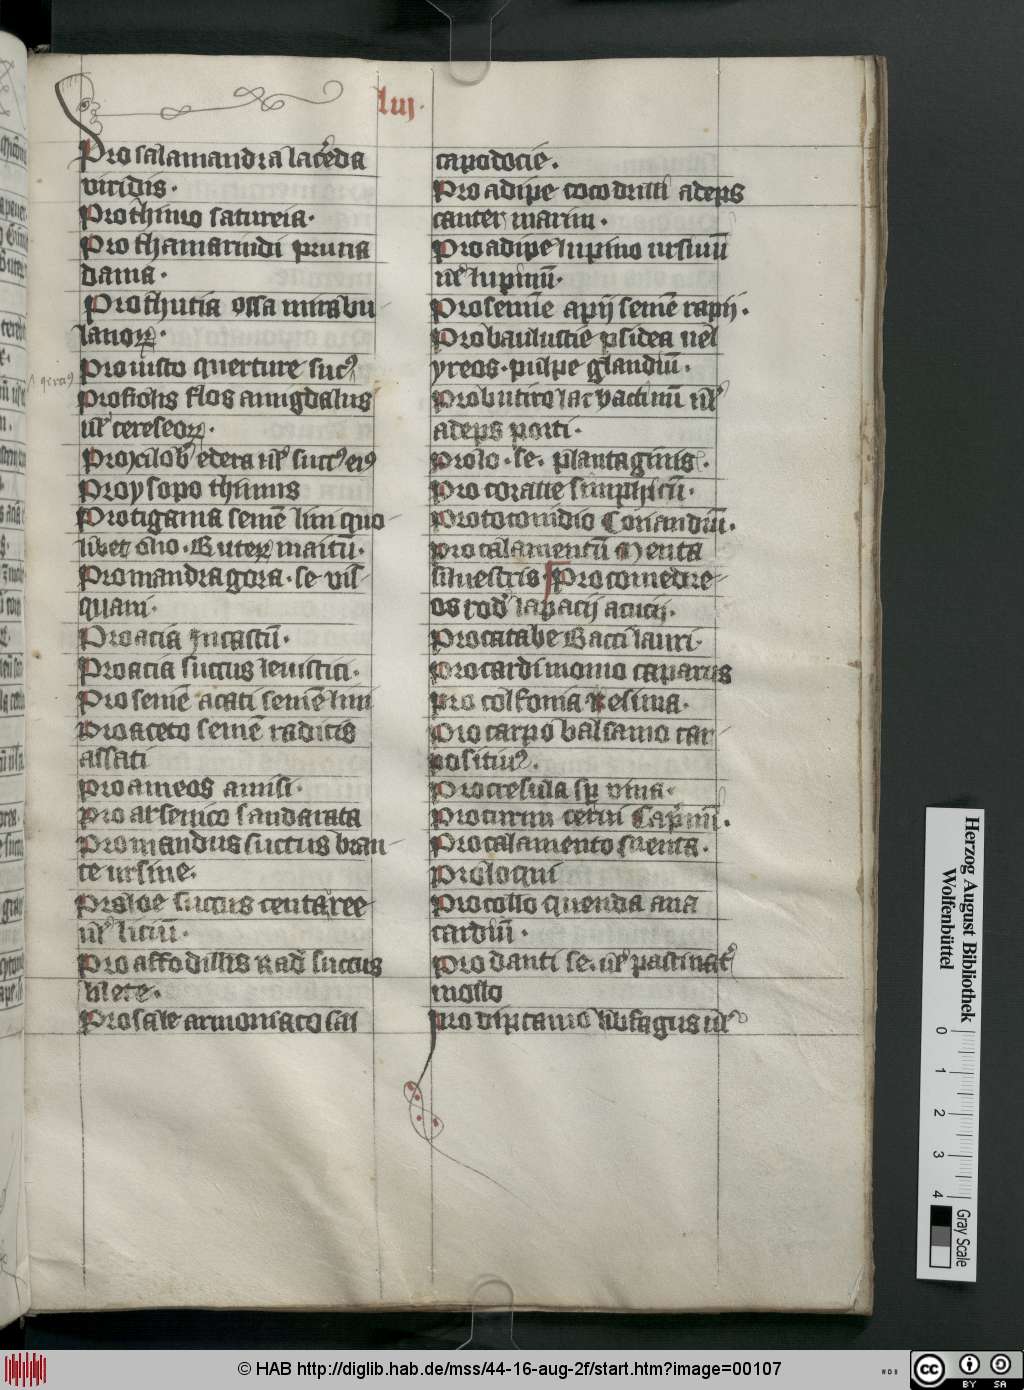 luj.
Pro salamandra lac̄eda
viridis.
Pro thimo satureia.
Pro thamarindi pruna
dama.
Pro thutia ossa mirabu
lanoꝝ.
Pro uisto querture sucꝰ
Pro fiolis flos amigdalus
ul' cereseoꝝ.
Pro xilob' edera ul' succꝰ eiꝰ
Pro ysopo thimus
Pro tigama semē lini quo
libet olio. Buteꝝ maitū.
Pro mandragora. se uis
quam.
Pro acia Incastū.
Pro acia succus leuistici.
Pro semē acati semē lini
Pro aceto semē radicis
assati
Pro ameos anisi.
Pro arsenico sandarata
Pro mandus succus bran
ce ursine.
Pro aloe succus centaree
ul' liciū.
Pro affodillis rad' succus
blete.
Pro sale armoniaco sal
capodocie.
Pro adipe cocodrilli adeps
cancer marin.
Pro adipe lupino ursinū
ul' lupinū.
Pro semīe apij semē rapij.
Pro baulustie psidea uel
yreos. pulpe glandiū.
Pro butiro lac vaccinū ul'
adeps porci.
Pro lo. se. plantaginis.
Pro coralle simphitū.
Pro cocomidio Coriandrū.
Pro calamentū Menta
siluestris. Pro comedre
os rod' lapacij acucij.
Pro catabe Bacci lauri.
Pro cardimomo caparus
Pro colfonia Resina.
Pro carpo balsamo car
positiuꝰ.
Pro cresula sp̄ vina.
Pro curcu cerui Caprinū.
Pro calamento suenta.
Pro loqui
Pro collo quenda ana
cardiū.
Pro danti se. ul' pastinac'
mollo
Pro diptamo libfagus ul'
Herzog August Bibliothek
Wolfenbüttel
0 1 2 3 4
Gray Scale
© HAB http://diglib.hab.de/mss/44-16-aug-2f/start.htm?image=00107
cc BY SA